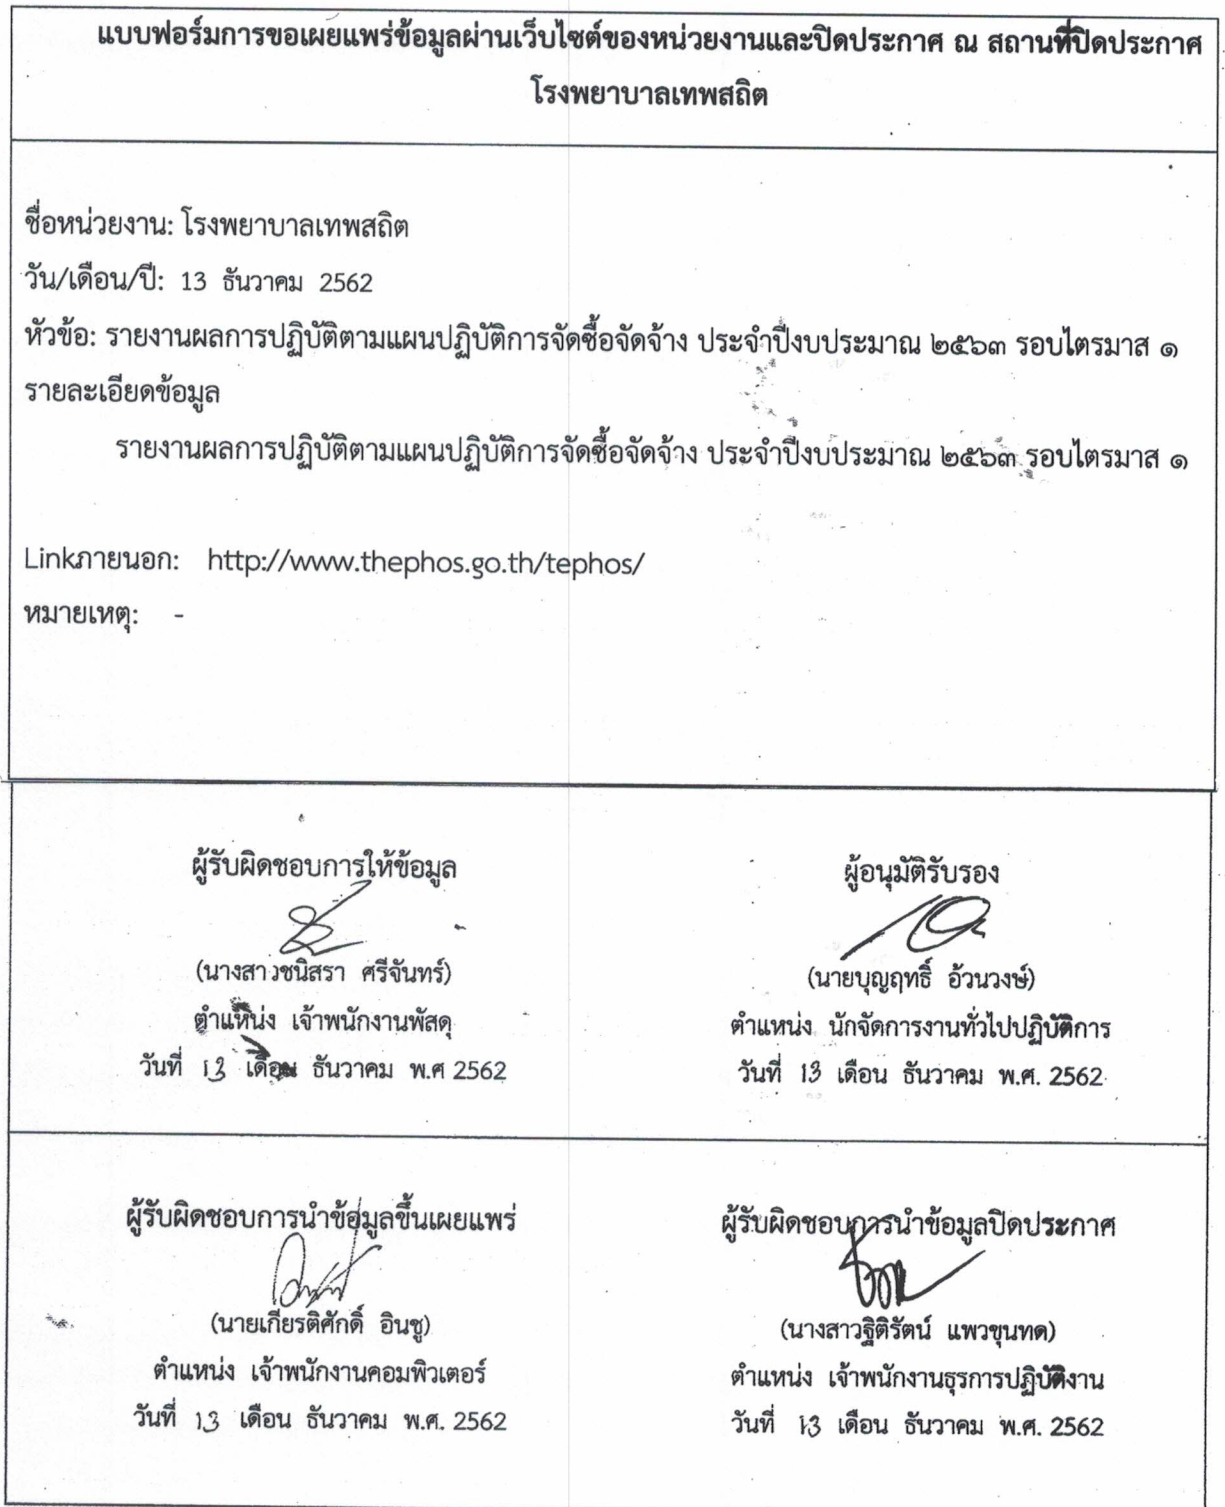 แบบฟอร์มการขอเผยแพร่ข้อมูลผ่านเว็บไซต์ของหน่วยงานและปิดประกาศ ณ สถานที่ปิดประกาศ
โรงพยาบาลเทพสถิต
ชื่อหน่วยงาน: โรงพยาบาลเทพสถิต
วัน/เดือน/ปี: 13 ธันวาคม 2562
หัวข้อ: รายงานผลการปฏิบัติตามแผนปฏิบัติการจัดซื้อจัดจ้าง ประจำปีงบประมาณ ๒๕๖๓ รอบไตรมาส ๑
รายละเอียดข้อมูล
รายงานผลการปฏิบัติตามแผนปฏิบัติการจัดซื้อจัดจ้าง ประจำปีงบประมาณ ๒๕๖๓ รอบไตรมาส ๑
Linkภายนอก: http://www.thephos.go.th/tephos/
หมายเหตุ: -
ผู้รับผิดชอบการให้ข้อมูล
(นางสาวชนิสรา ศรีจันทร์)
ตำแหน่ง เจ้าพนักงานพัสดุ
วันที่ 13 เดือน ธันวาคม พ.ศ 2562
ผู้อนุมัติรับรอง
(นายบุญฤทธิ์ อ้วนวงษ์)
ตำแหน่ง นักจัดการงานทั่วไปปฏิบัติการ
วันที่ 13 เดือน ธันวาคม พ.ศ. 2562
ผู้รับผิดชอบการนำข้อมูลขึ้นเผยแพร่
(นายเกียรติศักดิ์ อินชู)
ตำแหน่ง เจ้าพนักงานคอมพิวเตอร์
วันที่ 13 เดือน ธันวาคม พ.ศ. 2562
ผู้รับผิดชอบการนำข้อมูลปิดประกาศ
(นางสาวฐิติรัตน์ แพวขุนทด)
ตำแหน่ง เจ้าพนักงานธุรการปฏิบัติงาน
วันที่ 13 เดือน ธันวาคม พ.ศ. 2562